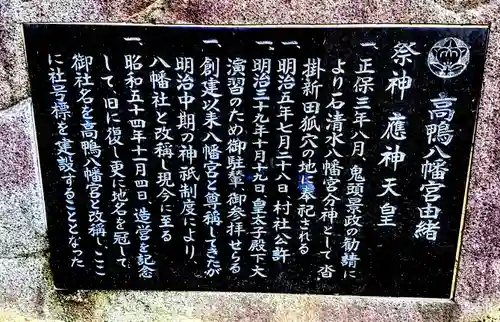 高鴨八幡宮由緒
祭神 應神天皇
一、正保三年八月 鬼頭景政の勧請に
より石清水八幡宮分神として 沓
掛新田狐穴の地に奉祀される
一、明治五年七月二十八日 村社公許
一、明治二十九年十月十九日 皇太子殿下大
演習のため御駐輦 御参拝せらる
一、創建以来八幡宮と尊称してきたが
明治中期の神祇制度により
八幡社と改称し現今に至る
一、昭和五十四年十一月四日 造営を記念
して、旧に復し更に地名を冠して
御社名を高鴨八幡宮と改称しここ
に社号標を建設することとなった